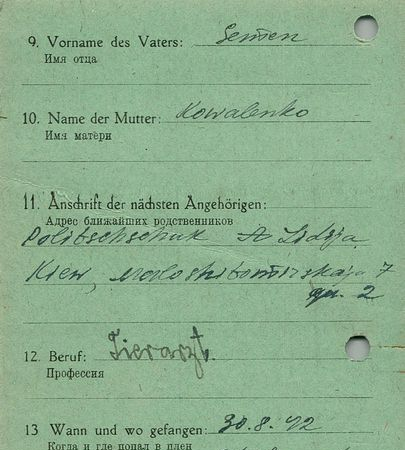 9. Vorname des Vaters: Semen
Имя отца
10. Name der Mutter: Kowalenko
Имя матери
11. Anschrift der nächsten Angehörigen:
Адрес ближайших родственников
A Lidija
Kiew, 7
2
12 Beruf: Tierarzt.
Профессия
13 Wann und wo gefangen: 30.8.42
Когда и где попал в плен